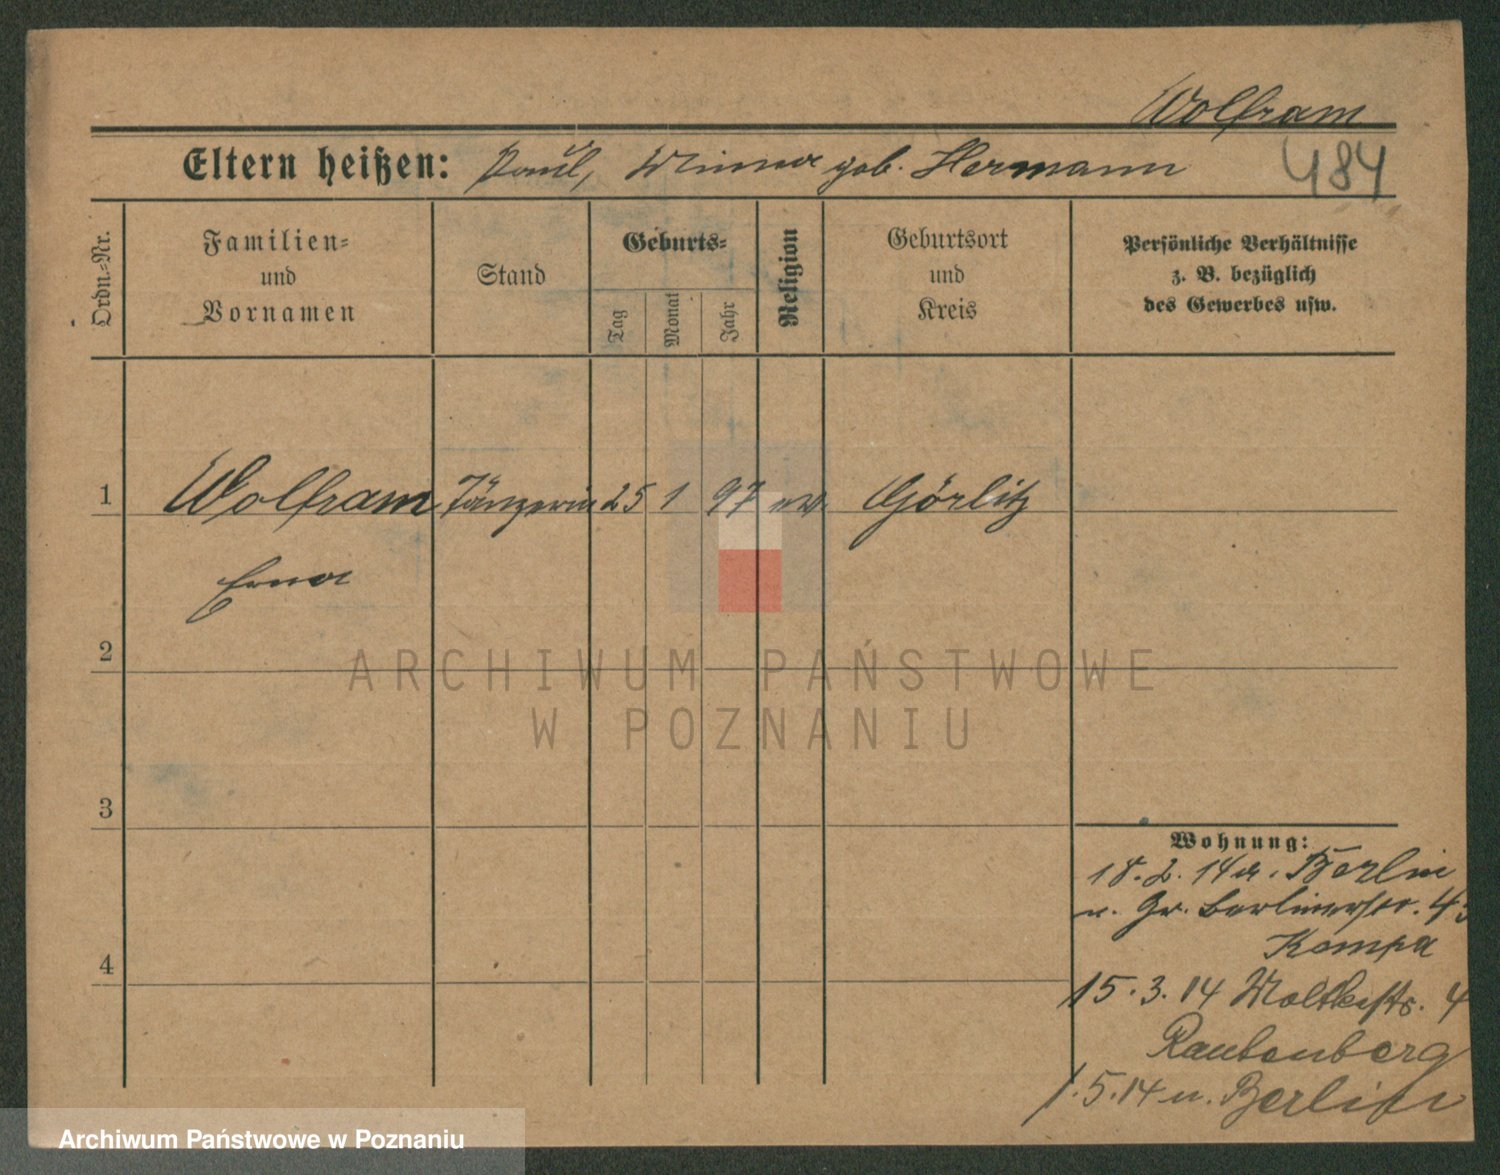 Wolfram
Eltern heißen: Paul, Minna geb. Hermann
484
Ordn.-Nr.
Familien-
und
Vornamen
Stand
Geburts-
Tag
Monat
Jahr
Religion
Geburtsort
und
Kreis
Persönliche Verhältnisse
z. B. bezüglich
des Gewerbes usw.
1 Wolfram Tänzerin 25 1 97 ev. Görlitz
Erna
2
3
4
Wohnung:
18.2.14 a. Berlin
n. Gr. Berlinerstr. 43
Kempa
15.3.14 Moltkestr. 4
Rautenberg
1.5.14 n. Berlin
ARCHIWUM PAŃSTWOWE
W POZNANIU
Archiwum Państwowe w Poznaniu